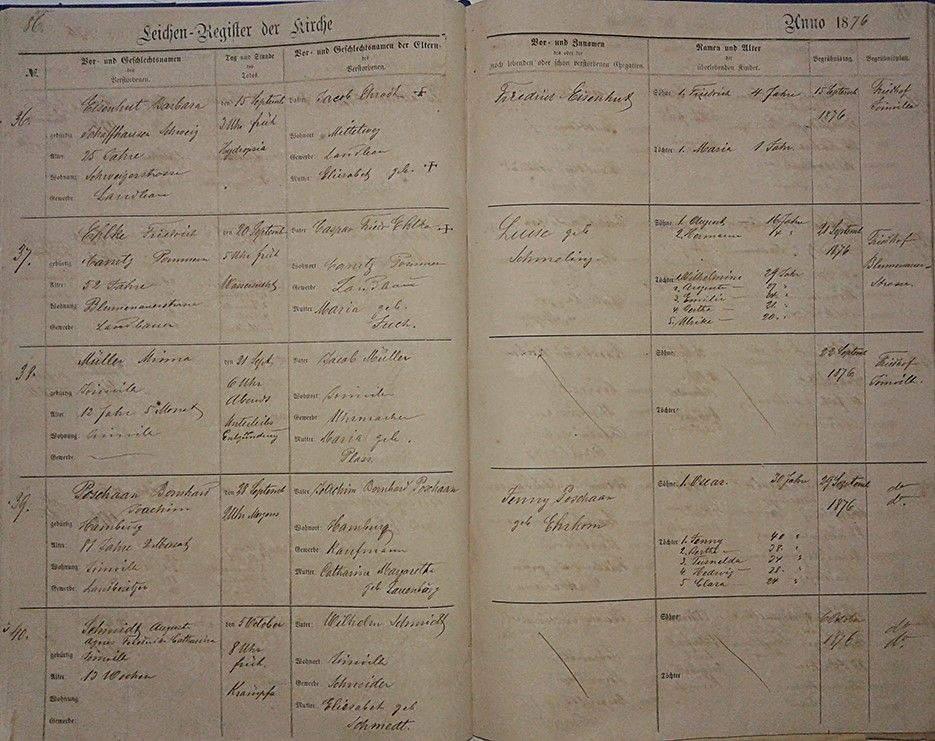 86.
Leichen-Register der Kirche
Anno 1876
№.
Vor- und Geschlechtsnamen
des
Verstorbenen.
Tag und Stunde
des
Todes.
Vor- und Geschlechtsnamen der Eltern
des
Verstorbenen.
Vor- und Zunamen
des oder der
noch lebenden oder schon verstorbenen Ehegatten.
Namen und Alter
der
überlebenden Kinder.
Begräbnißtag.
Begräbnißplatz.
36.
Eisenhut Barbara
gebürtig Schaffhausen Schweiz
Alter 25 Jahre
Wohnung: Schweizerstrasse
Gewerbe: Landbau
den 15 Septemb
3 Uhr früh
Hydropsia
Vater: Jacob +
Wohnort
Gewerbe: Landbau
Mutter: Elisabet geb. +
Eisenhut
Söhne: 1. Friedrich 4 Jahre
Töchter 1. Maria 1 Jahr.
15 Septemb
1876
Friedhof
Joinville
37.
Ehlke Friedrich
gebürtig Pommern
Alter: 52 Jahre
Wohnung: Blumenauerstrasse
Gewerbe: Landbauer
den 20 Septemb
5 Uhr früh
Wassersucht
Vater: Caspar Fried Ehlke +
Wohnort: Pommer
Gewerbe: Landbau
Mutter: Maria geb.
Luise geb
Schmeling.
Söhne: 1. August 16 Jahr
2. Hermann
Töchter 1. Wilhelmine 29 Jahr
2. Auguste 27 "
3. Emilie 24 "
4. Bertha 21 "
5. Ulrike 20 "
21 Septemb
1876
Friedhof
Blumenauer-
Strasse.
38.
Müller Minna
gebürtig Joinville
Alter: 12 Jahr 5 Monat
Wohnung: Joinville
Gewerbe:
den 21 Sept.
6 Uhr
Abends
Unterleibs
Entzündung
Vater: Jacob Müller
Wohnort: Joinville
Gewerbe: Uhrmacher
Mutter: Maria geb.
Söhne:
Töchter
22 Septemb
1876
Friedhof
Joinville.
39.
Poschaan Bernhard
Joachim
gebürtig Hamburg
Alter: 81 Jahre 2 Monat
Wohnung: Joinville
Gewerbe: Landbesitzer
den 28 Septemb
2 Uhr Morgens
Vater: Joachim Bernhard Poschaan
Wohnort: Hamburg
Gewerbe: Kaufmann
Mutter: Catharina Margaretha
geb Lauenburg
Jenny Poschaan
geb Ehrhorn
Söhne: 1. Oscar. 30 Jahre
Töchter 1. Jenny 40 "
2. Bertha 38 "
3. Tusnelda 34 "
4 Hedwig 28 "
5 Clara 24 "
29 Septemb
1876
do
do.
40.
Schmidt August
Agnes Friederike Catharina
gebürtig Joinville
Alter 13 Wochen
Wohnung
Gewerbe:
den 5 October
8 Uhr
früh.
Krämpfe
Vater: Wilhelm Schmidt
Wohnort Joinville
Gewerbe: Schneider
Mutter: Elisabet geb
Schmedt.
Söhne:
Töchter
6 October
1876
do
do.